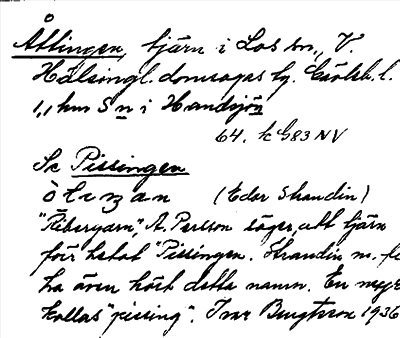 Åttingen, tjärn i Los sn., V.
Hälsingl. domsagas tg. Gävleb. l.
1,1 km S n i Handsjön
64. k G83 NV
Se Pissingen
(Edor Strandin)
"Ribergarn", A. Persson säger, att tjärn
förr hetat "Pissingen. Strandin m. fl
ha även hört detta namn. En myr
kallas "pissing". Ivar Bengtsson 1936